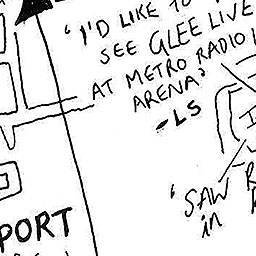 'I'D LIKE TO
SEE GLEE LIVE
AT METRO RADIO
ARENA'
-LS
'SAW
in
PORT